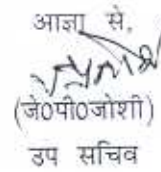 आज्ञा से,
(जे0पी0जोशी)
उप सचिव